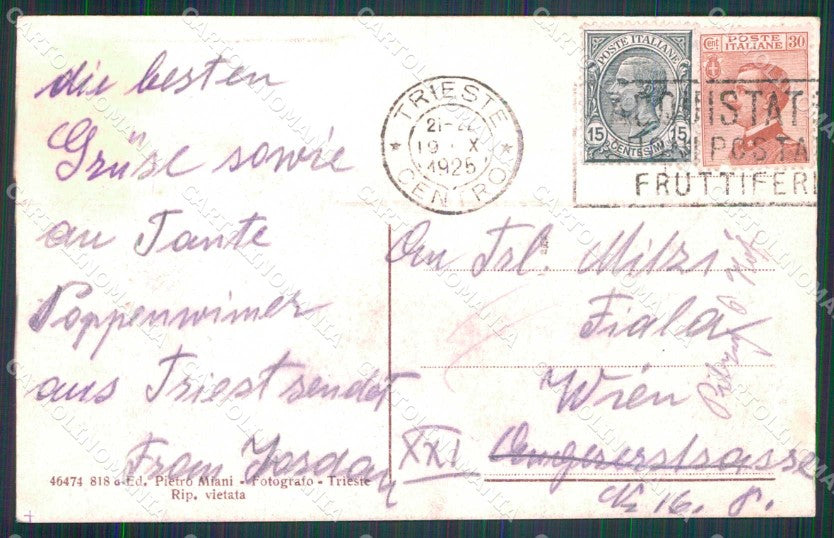 die besten
Grüse sowie
an Tante
Poppenwimer
aus Triest sendet
Fram Jordan
46474 818 d-Ed. Pietro Miani - Fotografo - Trieste
Rip. vietata
TRIESTE
21-22
19 X
1925
CENTRO
POSTE ITALIANE
15 15
CENTESIMI
Cent POSTE 30
ITALIANE
ACQUISTAT
POSTA
FRUTTIFERI
An Frl. Mitzi
Fiala
Wien
XXI. Anzererstrasse
No 16. 8.
CARTOLINOMANIA